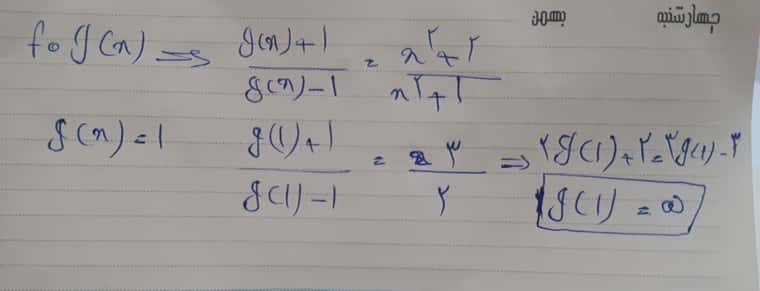 چهارشنبه بهمن
fog(x) ⇒ g(x)+1 / g(x)-1 = x^۲+۲ / x^۲+1
g(x)=1 g(1)+1 / g(1)-1 = ۳ / ۲ ⇒ ۲g(1)+۲=۳g(1)-۳
g(1) = ۵